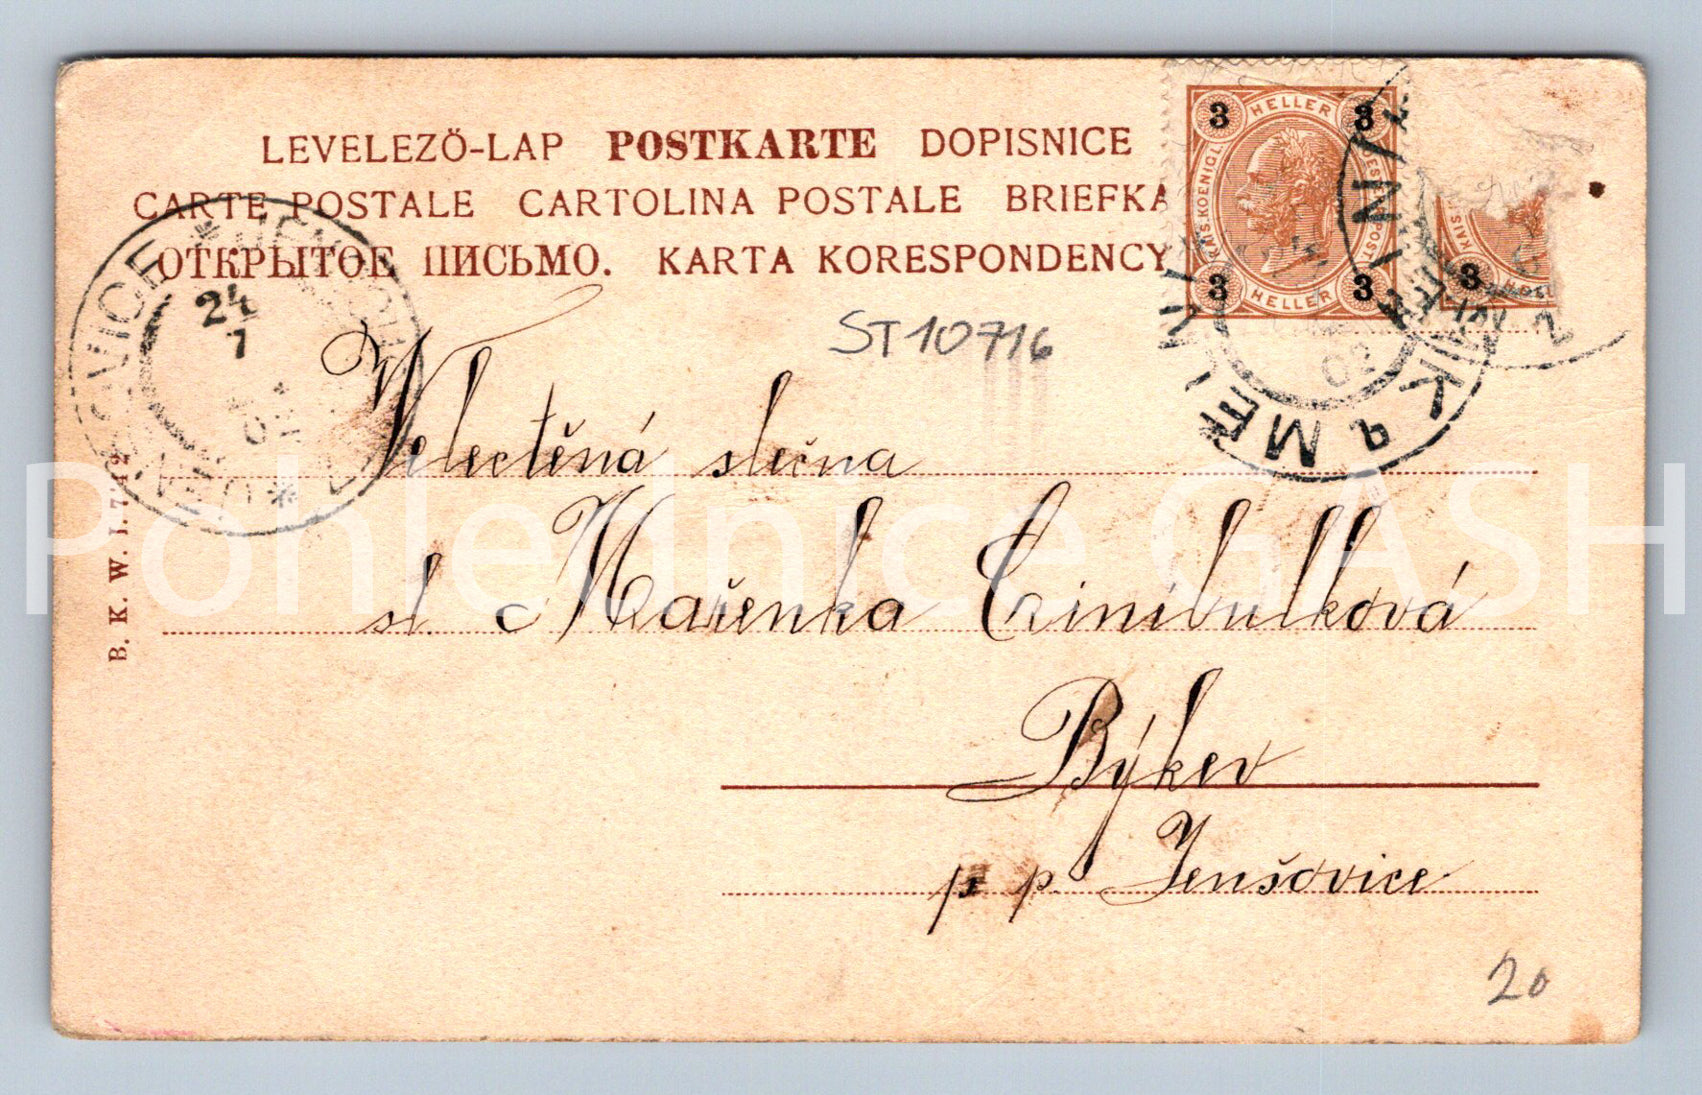 LEVELEZÖ-LAP POSTKARTE DOPISNICE
CARTE POSTALE CARTOLINA POSTALE BRIEFKA
ОТКРЫТОЕ ПИСЬМО. KARTA KORESPONDENCY
3 HELLER 3
KAIS.KOENIGL. OESTERR.POST
3 HELLER 3
KAIS.
3
24
7
02
ST10716
02
MĚLNÍK
Velectěná slečna
sl. Mařenka Cinibulková
Býkev
p. p. Jenšovice
B. K. W. I.
20
Pohlednice GASH